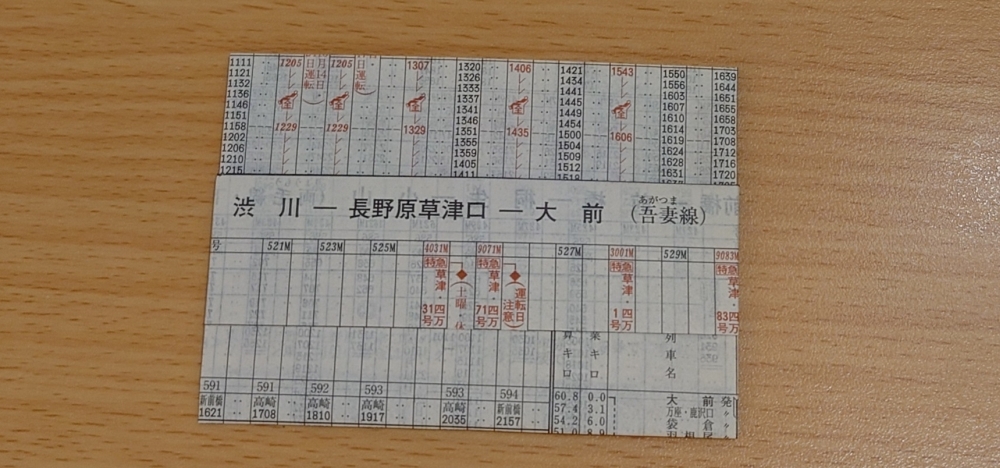 1111 ‥ 1205 日運転 月14日 1205 日運転 ‥ 1307 ‥ 1320 ‥ 1406 ‥ 1421 ‥ 1543 ‥ 1550 ‥ 1639
1121 1326 1434 1556 1644
1132 1333 1441 1603 1651
1136 1337 1445 1607 1655
1146 1341 1449 1610 1658
1151 1346 1454 1614 1703
1158 1229 1229 1329 1351 1435 1500 1606 1619 1708
1202 1355 1504 1624 1712
1206 1359 1509 1628 1716
1210 1405 1512 1631 1720
1215 1411 1518 1637
あがつま
渋川 ― 長野原草津口 ― 大前 (吾妻線)
号 521M 523M 525M 4031M 9071M 527M 3001M 529M 9083M
特急 草津・四万 31号 ◆(土曜・休
特急 草津・四万 71号 ◆(運転日注意)
特急 草津・四万 1号
特急 草津・四万 83号
キロ キロ 列車名
591 591 592 593 593 594
新前橋 高崎 高崎 高崎 高崎 新前橋
1621 ‥ 1708 ‥ 1810 ‥ 1917 ‥ 2035 ‥ 2157 ‥
60.8 0.0 大前 発
57.4 3.1 万座・鹿沢口 〃
54.2 6.0 袋倉 〃
51.0 8.9 羽根尾